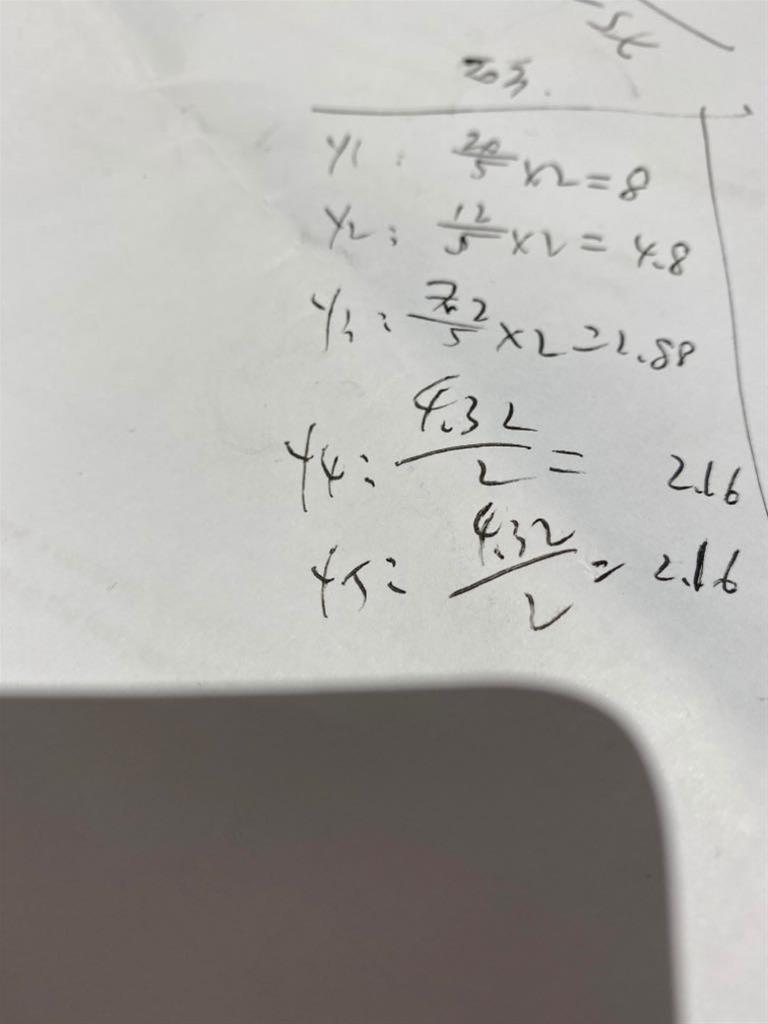 5x
203.
Y1: 20/5 x2=8
Y2: 12/5 x2 = 4.8
Y3: 7.2/5 x2=2.88
Y4: 4.32/2 = 2.16
Y5: 4.32/2 = 2.16